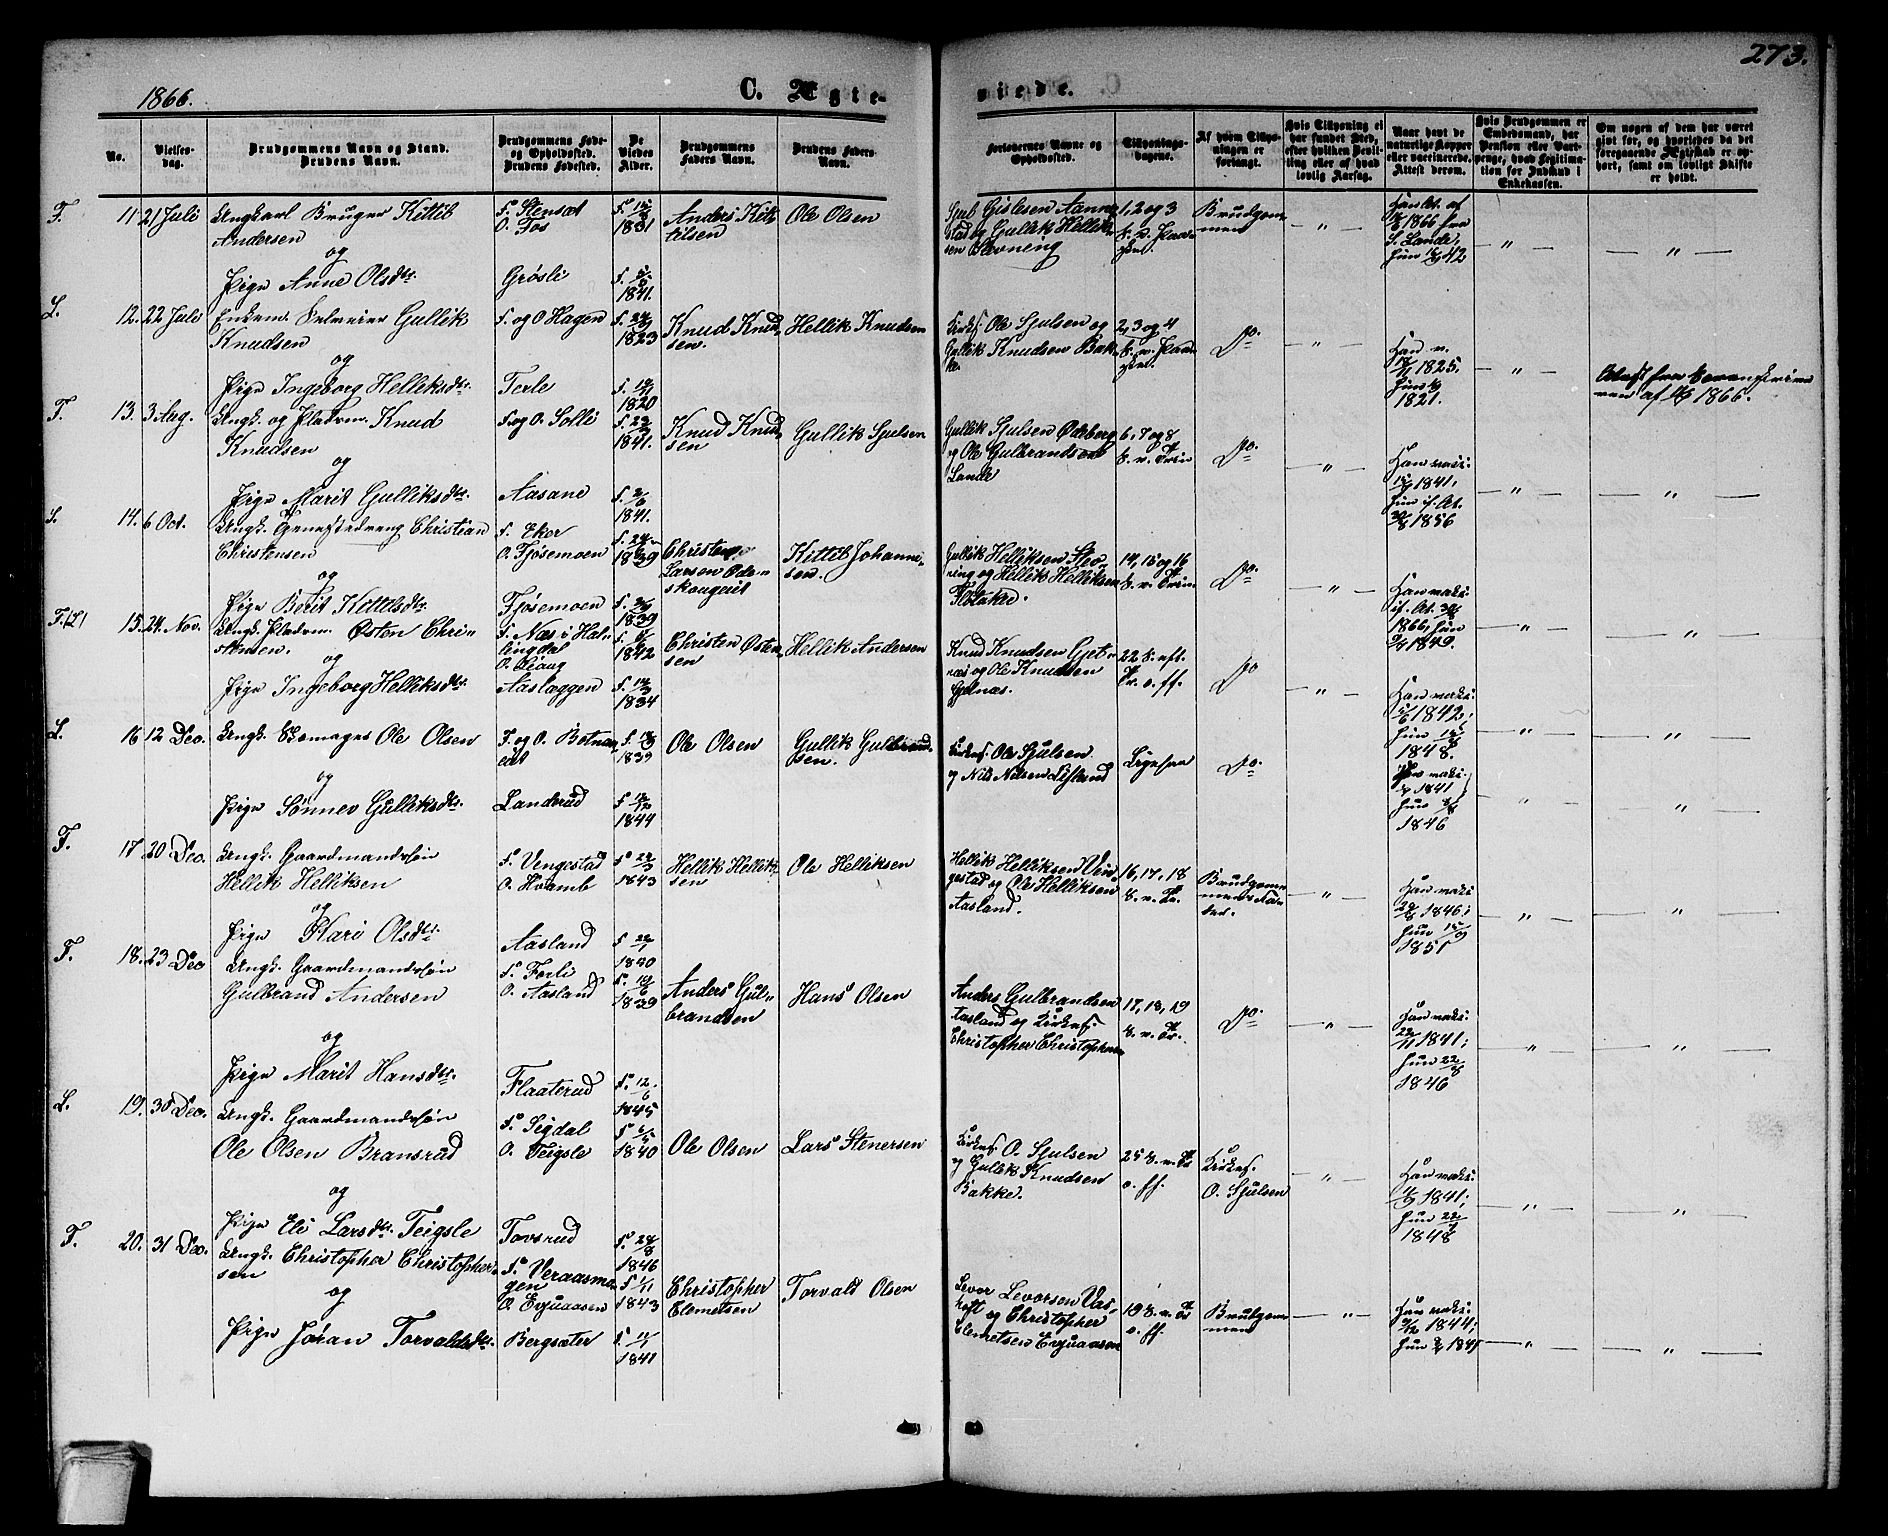 273.
1866.
C. Ægte-
viede.
No.
Vielses-
dag.
Brudgommens Navn og Stand.
Brudens Navn.
Brudgommens Føde-
og Opholdssted.
Brudens Fødested.
De
Viedes
Alder.
Brudgommens
Faders Navn.
Brudens Faders
Navn.
Forlovernes Navne og
Opholdssted.
Tillysnings-
dagene.
Af hvem Tillys-
ningen er
forlangt.
Hvis Tillysning ei
har fundet Sted,
efter hvilken Bevil-
ling eller af hvad
lovlig Aarsag.
Naar havt de
naturlige Kopper
eller vaccinerede.
Attest derom.
Hvis Brudgommen er
Embedsmand, har
Pension eller Vart-
penge, hvad Legitima-
tion for Indskud i
Enkekassen.
Om nogen af dem har været
gift før, og hvorledes da det
foregaaende Ægteskab er op-
hørt, samt om lovligt Skifte
er holdt.
F. 11. 21 Juli Ungkarl Bruger Kittil
Andersen
og
Pige Anne Olsdtr.
F. Stensæt
O. Fos
Grøsli
1831
F. 1841.
Anders Kit-
tilsen
Ole Olsen
Sjul Gislesen Aanne-
stad og Gullik Hellik-
sen Slevning
1, 2 og 3
Brudgom-
men
1866 fra
S. Lande,
hun 42
L. 12. 22 Juli Enkem. Selveier Gullik
Knudsen
og
Pige Ingeborg Helliksdtr.
F. og O. Hagen
Terle
1823
1820
Knud Knud-
sen.
Hellik Knudsen
Kirkes. Ole Sjulsen og
Gullik Knudsen Bak-
ke
2, 3 og 4
Do.
Han v.
1825,
hun
1821.
Attest fra Sorenskrive
ren af 1866.
F. 13. 3 Aug. Ungk. og Pladsm. Knud
Knudsen
og
Pige Marit Gulliksdtr.
F. og O. Solli
Aasane
1841.
1841.
Knud Knud-
sen
Gullik Sjulsen
Gullik Sjulsen Ødeberg
og Ole Gulbrandsen
Lande
6, 7 og 8
S. e. Trin
Do.
Han vakc.
1841,
hun if. At.
1856
14. 6 Oct. Ungk. Christian
Christensen
og
Pige Berit Kittelsdtr.
F. Eker
O. Fjøsemoen
Fjøsemoen
1839
1839
Christen
Larsen Øde-
skougeiet
Kittil Johanne-
sen.
Gullik Helliksen Slev-
ning og Hellik Helliksen
14, 15 og 16
S. e. Trin
Do.
Han vakc.
if. At.
1866, hun
1849.
15. 24. Nov. Ungk. Pladsm. Østen Chri-
stensen.
og
Pige Ingeborg Helliksdtr.
F. Næs i Hal-
lingdal
Aaslaggen
1842
1834
Christen Østen-
sen
Hellik Andersen
Knud Knudsen Gjet-
næs og Ole Knudsen
Gjetnæs.
22 S. eft.
Tr. o. ff.
Do
Han vakc.
1842;
hun
1848.
L. 16 12 Dec. Ungk. Ole Olsen
og
Pige Sønnev Gulliksdtr.
F. og O. Botnen-
eiet
Landerud
1839
1844
Ole Olsen
Gullik Gulbrand-
sen.
Kirkes. Ole Sjulsen
og Nils Nilsen
Ligesaa
Do.
Han vakc.
1841
hun
1846
F. 17 20 Dec. Ungk. Gaardmandssøn
Hellik Helliksen
og
Pige Kari Olsdtr.
F. Vengestad
O. Hvamb
Aasland
1843
1840
Hellik Hellik-
sen
Ole Helliksen
Hellik Helliksen Ven-
gestad og Ole Helliksen
Aasland.
16, 17, 18
S. e. Tr.
Brudgom-
mens Fa-
der.
Han vakc.
1846;
hun
1851
F. 18. 23 Dec Ungk. Gaardmandssøn
Gulbrand Andersen
og
Pige Marit Hansdtr.
F. Forli
O. Aasland
Flaaterud
1839
1845
Anders Gul-
brandsen
Hans Olsen
Anders Gulbrandsen
Aasland og Kirkes.
Christopher Christophers.
17, 18, 19
S. e. Tr.
Do.
Han vakc.
1841;
hun
1846
L. 19. 30 Dec. Ungk. Gaardmandssøn
Ole Olsen Bransrud
og
Pige Eli Larsdtr. Teigsle
F. Sigdal
O. Teigsle
Tovsrud
1840
1846
Ole Olsen
Lars Stenersen
Kirkes. O. Sjulsen
og Gullik Knudsen
Bakke.
25 S. e. Tr
o. ff.
Kirkes.
O. Sjulsen
Han vakc.
1841;
hun
1848
F. 20. 31 Dec. Ungk. Christopher Christopher-
sen
og
Pige Jøran Torvaldsdtr.
Bergsæter
1843
1841
Christopher
Clemetsen
Torvald Olsen
Levor Levorsen Vas-
hoft og Christopher
Clemetsen
19 S. e. Tr
o. ff.
Brudgom-
men
Han vakc.
1844;
hun 1841